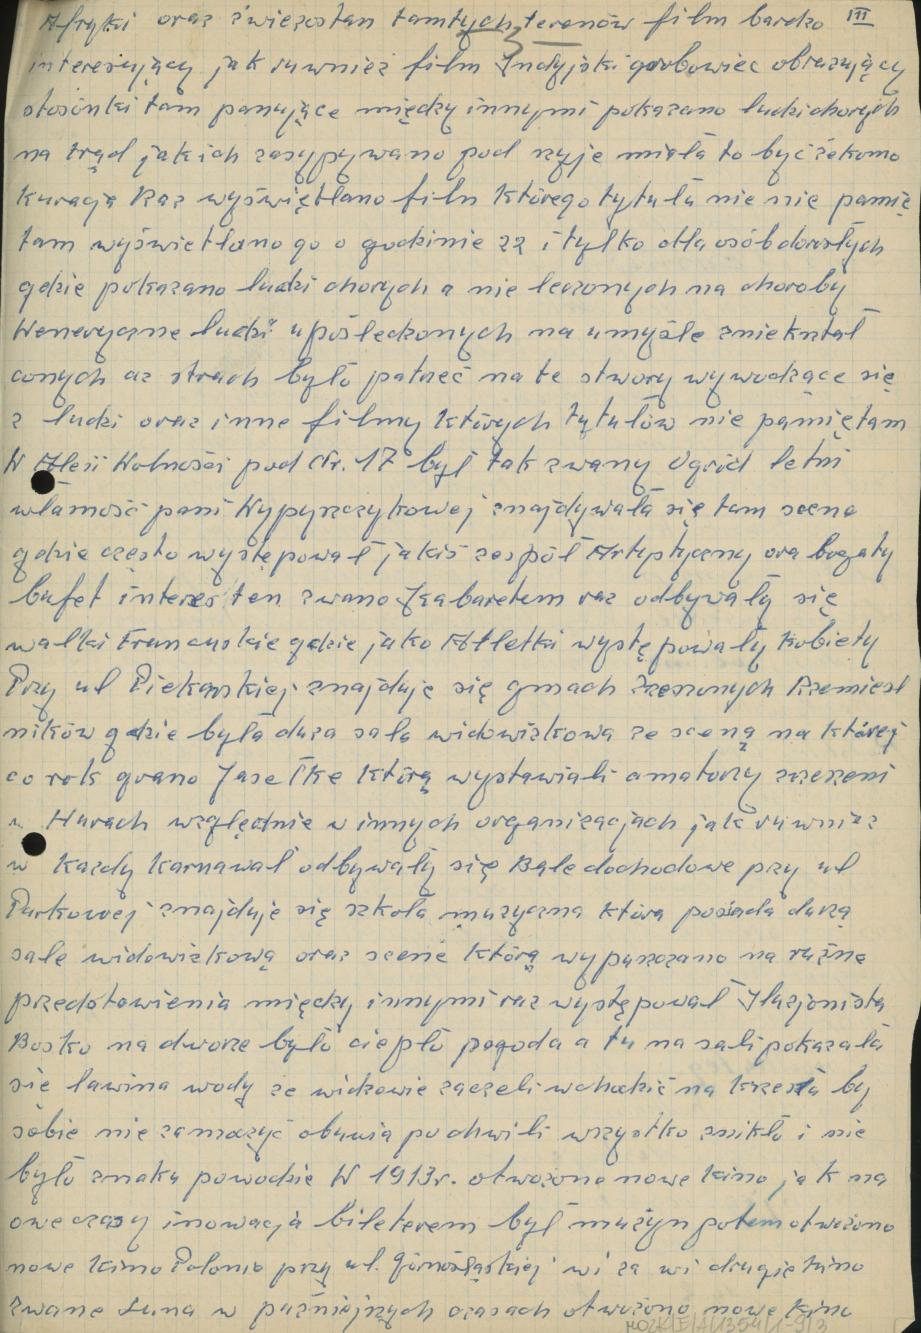 III
Afryki oraz zwiezostan tamtych terenów film bardzo
interesujący jak ruwnież film Indyjski grobowiec obrazujący
stosónki tam panujące między innymi pokazano ludzi chorych
na trąd jakich zasypywano pod szyje miała to być żekomo
kuracja Raz wyświętlano film którego tytułu nie nie pamię
tam wyświetlano go o godzinie 22 i tylko dla osób dorosłych
gdzie pokazano ludzi chorych a nie leczonych na choroby
Weneryczne ludzi upośledzonych na umyśle znieksztal
conych az strach było patrzeć na te stwory wywodzące się
z ludzi oraz inne filmy których tytułów nie pamiętam
W Aleii Wolnośći pod Nr. 17 był tak zwany Ogród letni
własność pani Wypyszczykowej znajdywała się tam scena
gdzie często występował jakiś zespół Artystyczny ora bogaty
bufet interes ten zwano Kabaretem raz odbywały się
walki Francuskie gdzie jako Atletki występowały Kobiety
Przy ul Piekarskiej znajduję się gmach Zrzeszonych Rzemieśl
ników gdzie była duża sala widowiskowa ze sceną na której
co rok grano Jasełke którą wystawiali amatorzy zrzeszeni
w Hurach względnie w innych organizacjach jak ruwnież
w Kazdy Karnawał odbywały się Bale dochodowe przy ul
Parkowej znajduje się szkoła muzyczna która posiada dużą
sale widowiskową oraz scenę którą wypuszczano na rużne
przedstawienia między innymi raz występował Iluzjonista
Bosko na dworze było ciepło pogoda a tu na sali pokazała
się lawina wody ze widzowie zaczeli wchodzić na krzesła by
sobie nie zamoczyć obuwia po chwili wszystko znikło i nie
było znaku powodzie W 1913r. otwożono nowe kino jak na
owe czasy inowacja bileterem był mużyn potem otwożono
nowe kino Polonia przy ul. Górnośląskiej wi za wi drugie kino
zwane Luna w puźniejszych czasach otwożono nowe kino
MOZK/E/A/1354/1-9/3